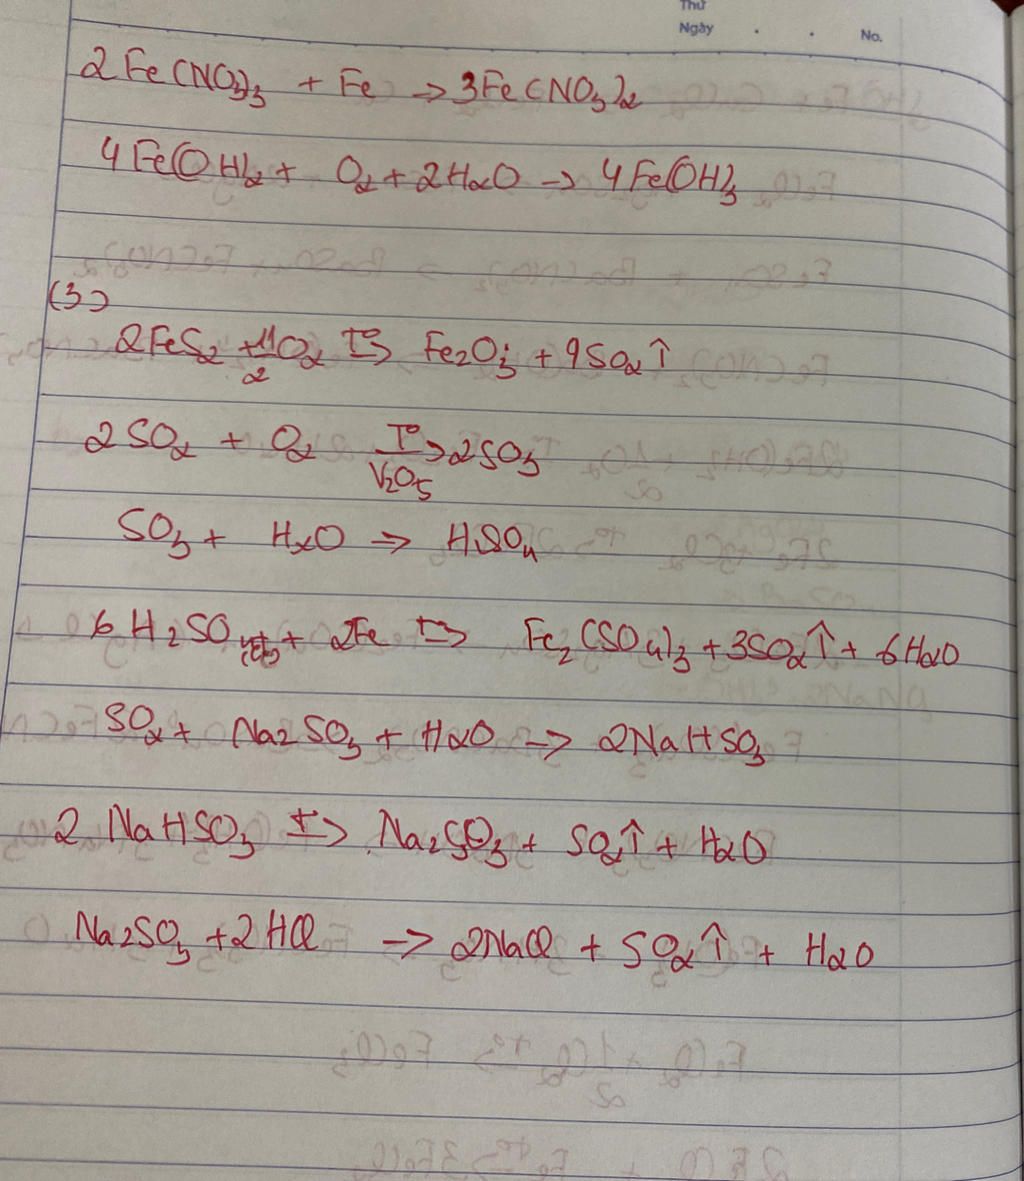 Thứ
Ngày . . No.
2Fe(NO3)3 + Fe → 3Fe(NO3)2
4Fe(OH)2 + O2 + 2H2O → 4Fe(OH)3
(3)
2FeS2 + 11/2 O2 t°→ Fe2O3 + 9SO2↑
2SO2 + O2 T°→ V2O5 2SO3
SO3 + H2O → H2SO4
6H2SO4 + 2Fe t→ Fe2(SO4)3 + 3SO2↑ + 6H2O
SO2 + Na2SO3 + H2O → 2NaHSO3
2NaHSO3 t→ Na2SO3 + SO2↑ + H2O
Na2SO3 + 2HCl → 2NaCl + SO2↑ + H2O